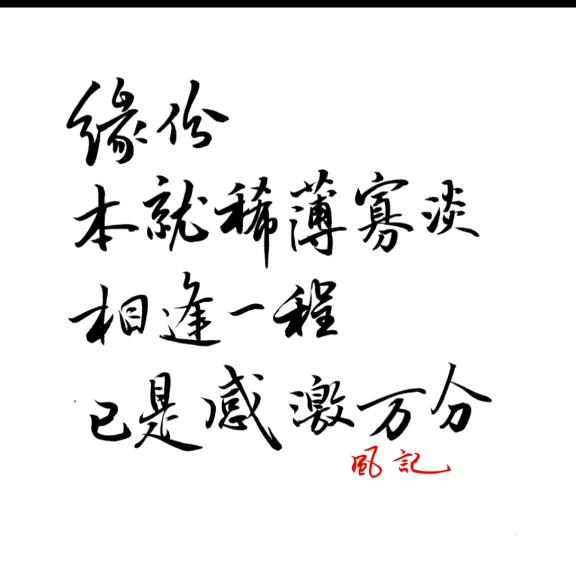 緣份
本就稀薄寡淡
相逢一程
已是感激万分
風記